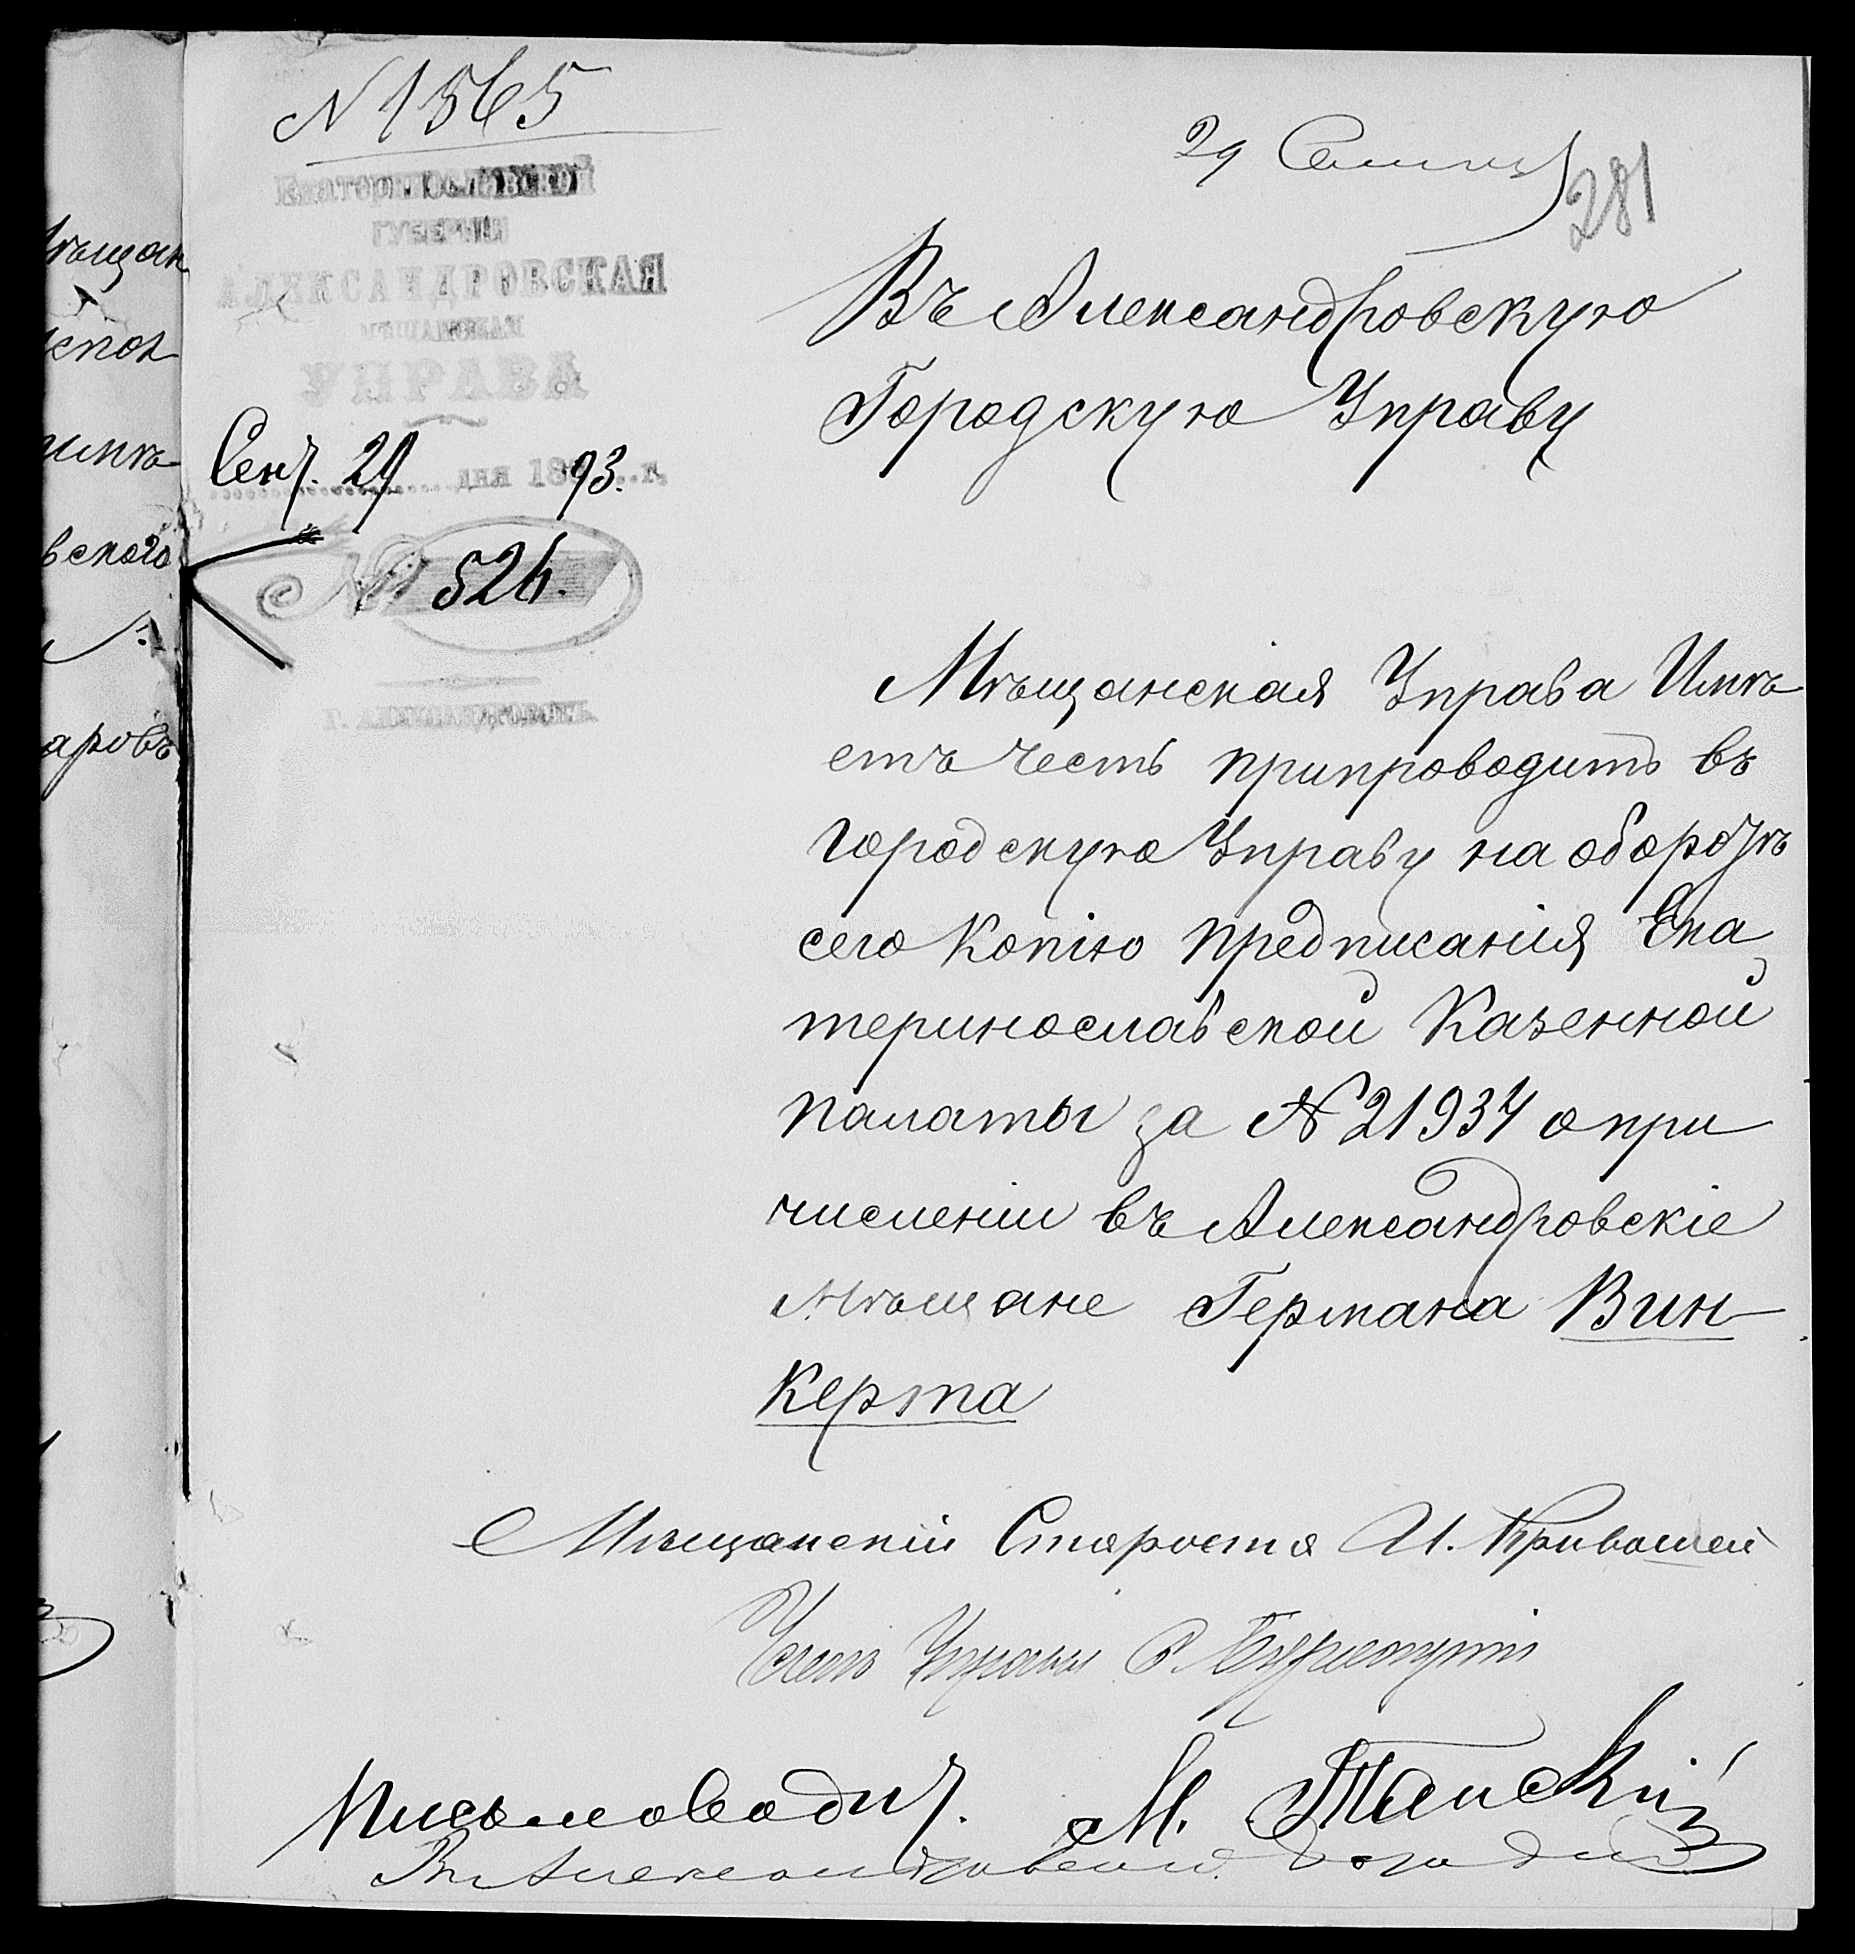 N 1565
29 Сент
281
Екатеринославской
ГУБЕРНІИ
АЛЕКСАНДРОВСКАЯ
МѢЩАНСКАЯ
УПРАВА
Сент. 29 дня 1893 г.
№ 526.
Г. АЛЕКСАНДРОВСКЪ
Въ Александровскую
Городскую Управу
Мѣщанская Управа Имѣ
етъ честь припроводить въ
Городскую Управу на оборотѣ
сего копію предписанія Ека
теринославской Казенной
палаты за № 21934 о при
численіи въ Александровскіе
Мѣщане Германа Вин-
керта
Мѣщанскій Староста И. Кривошей
Членъ Управы
Письмоводит. М.
мѣщан
вского
аровъ